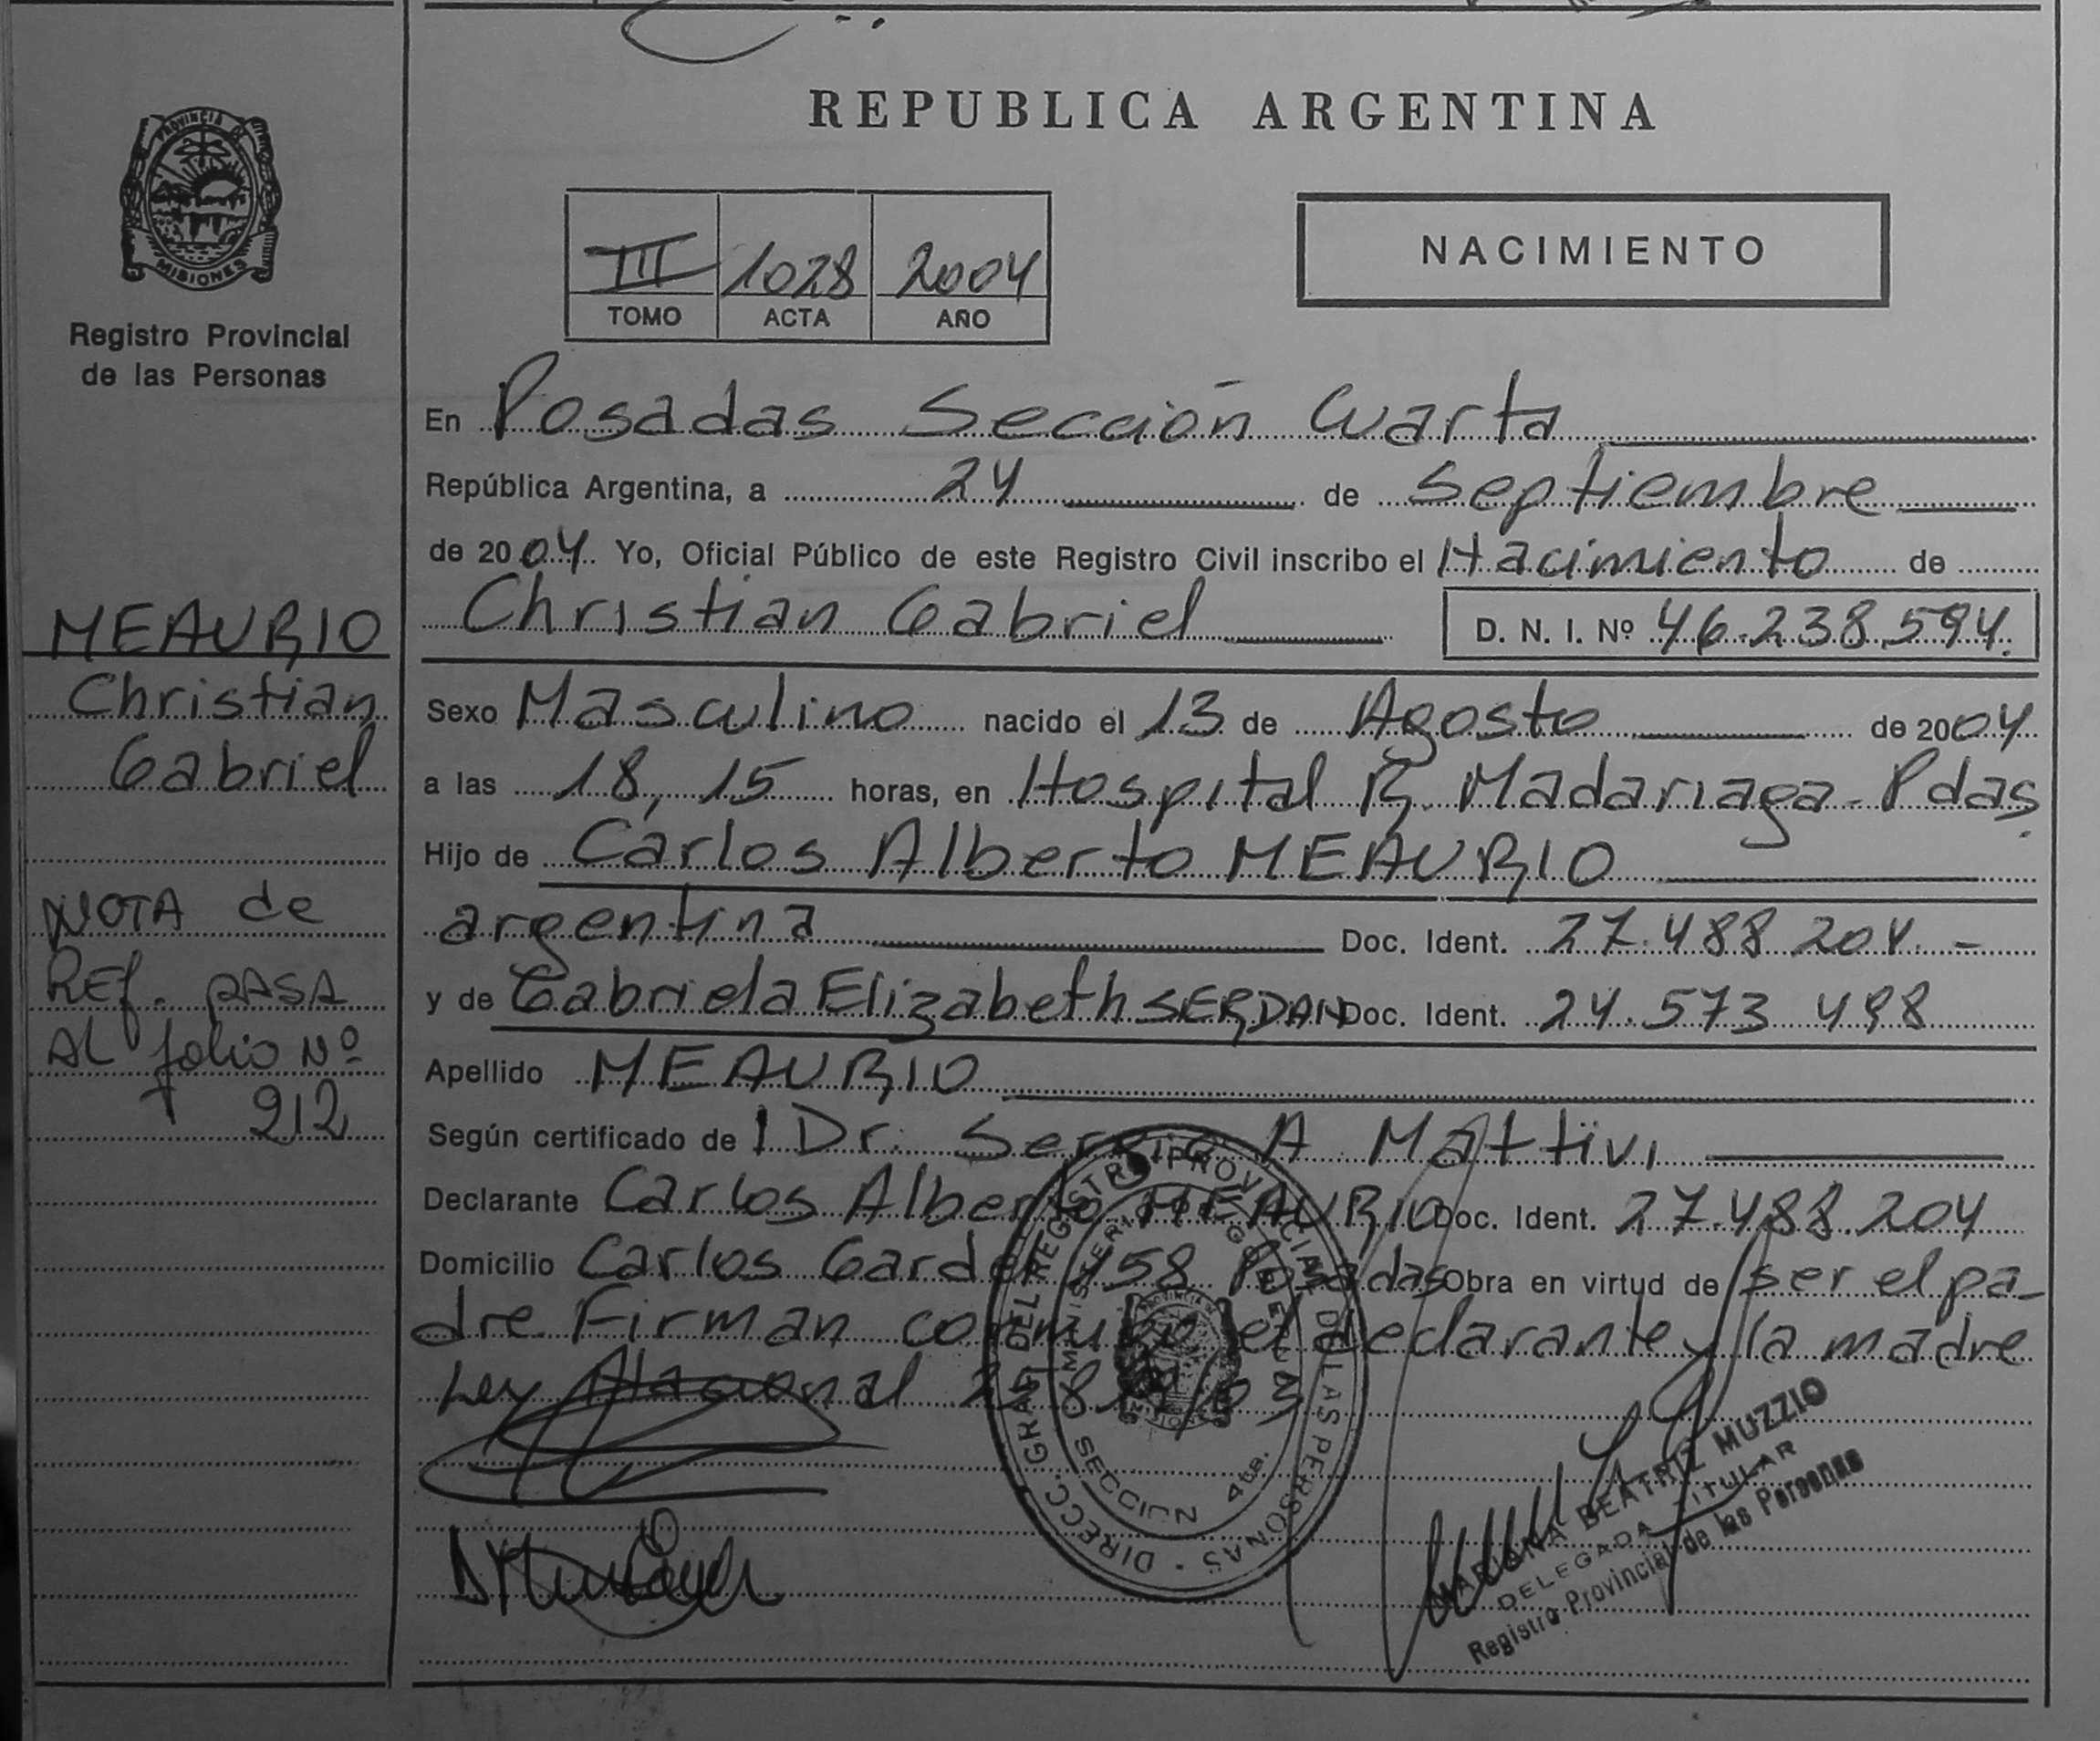 REPUBLICA ARGENTINA
PROVINCIA DE
MISIONES
Registro Provincial
de las Personas
III 1028 2004
TOMO ACTA AÑO
NACIMIENTO
En Posadas Sección Cuarta
República Argentina, a 24 de Septiembre
de 2004 Yo, Oficial Público de este Registro Civil inscribo el Nacimiento de
Christian Gabriel D. N. I. Nº 46.238.594.
MEAURIO
Christian
Gabriel
Sexo Masculino nacido el 13 de Agosto de 2004
a las 18,15 horas, en Hospital R. Madariaga - Pdas.
Hijo de Carlos Alberto MEAURIO
argentina Doc. Ident. 27.488 204. -
y de Gabriela Elizabeth SERDAN Doc. Ident. 24.573 498
Apellido MEAURIO
NOTA de
REf. PASA
AL folio Nº
212
Según certificado de l Dr. Sergio A Mattivi
Declarante Carlos Alberto MEAURIO Doc. Ident. 27.488.204
Domicilio Carlos Gardel 458 Posadas Obra en virtud de ser el pa-
dre. Firman conmigo el declarante y la madre
Ley Nacional
DIRECC. GRAL DEL REGISTRO PROVINCIAL DE LAS PERSONAS
MINISTERIO DE GOBIERNO
SECCION 4ta.
MARIANA BEATRIZ MUZZIO
DELEGADA TITULAR
Registro Provincial de las Personas